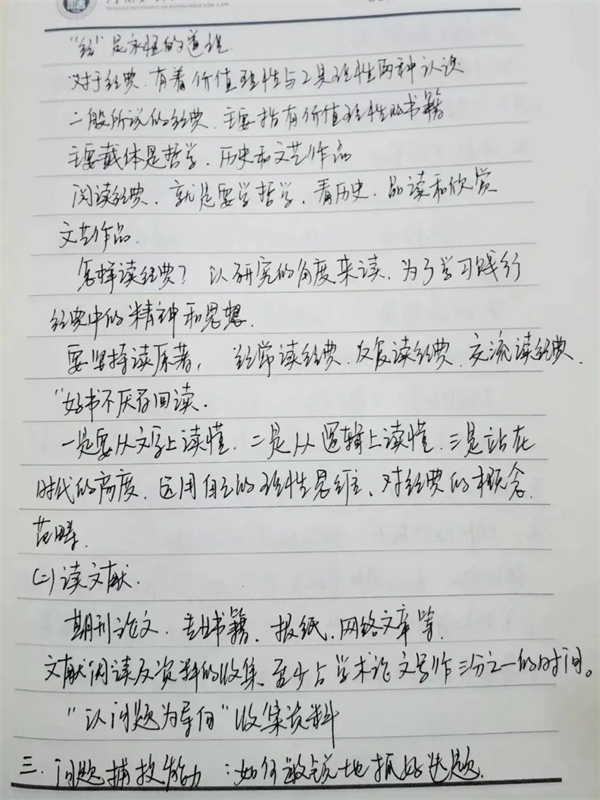 "经"是永恒的道理.
对于经典,有着价值理性与工具理性两种认识
一般所说的经典,主要指有价值理性的书籍
主要载体是哲学、历史和文艺作品
阅读经典,就是要学哲学、看历史、品读和欣赏
文艺作品.
怎样读经典?以研究的角度来读,为了学习践行
经典中的精神和思想.
要坚持读原著,经常读经典、反复读经典、交流读经典.
"好书不厌百回读.
一是要从文字上读懂.二是从逻辑上读懂.三是站在
时代的高度,运用自己的理性思维、对经典的概念、
范畴.
(二)读文献.
期刊论文、书籍、报纸、网络文章等.
文献阅读及资料的收集,至少占学术论文写作三分之一的时间。
"以问题为导向"收集资料
三.问题捕捉能力:如何敏锐地抓好选题.